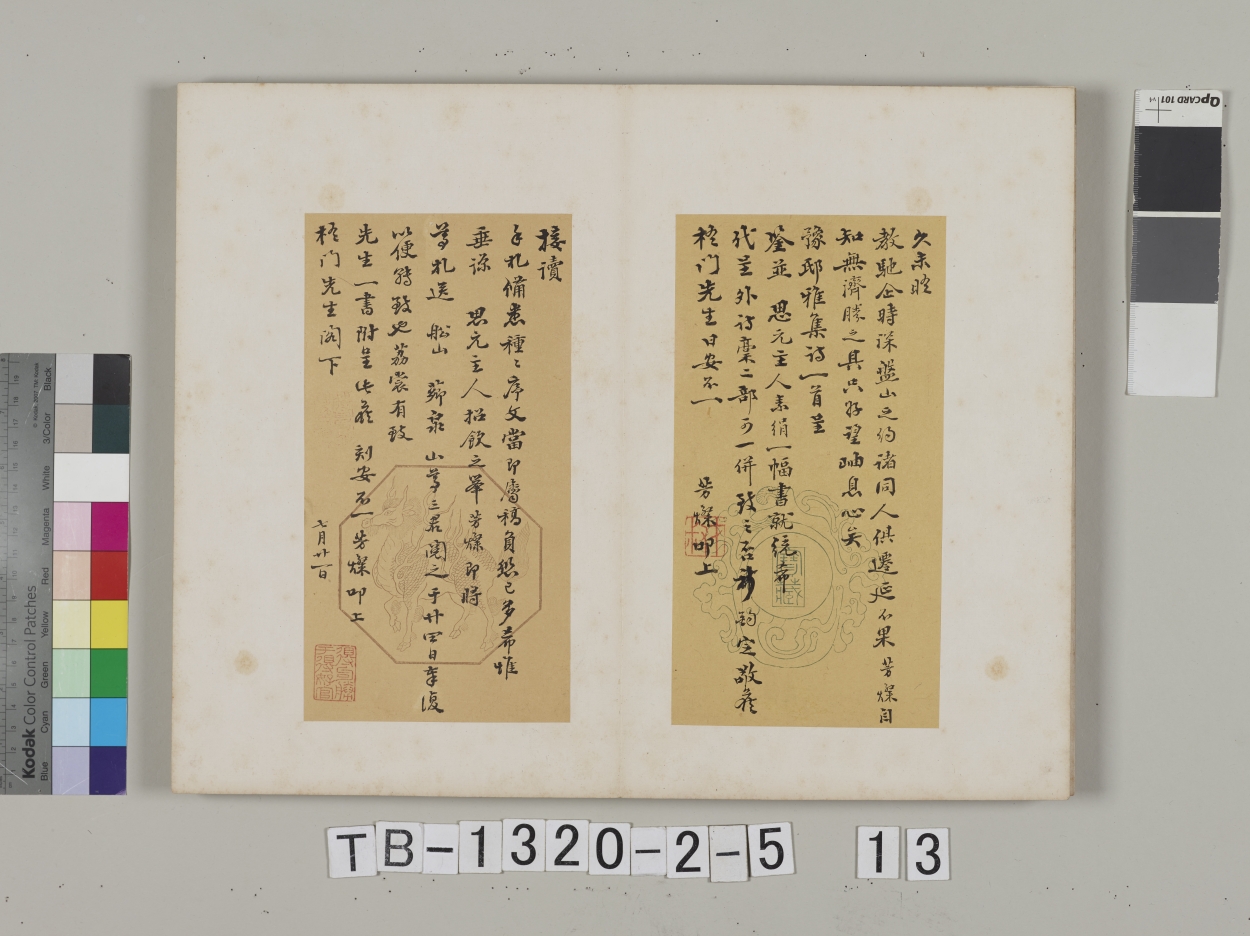 久未晤
教馳企時深盤山之約諸同人俱遷延不果芳燦自
知無濟勝之具只好望岫息心矣
豫邸雅集詩一首呈
鑒並 思元主人素絹一幅書就統希
代呈外詩稾二部可一併致之否 專 鈞安敬候
柊門先生日安不一
芳燦叩上
接讀
手札備悉種々序文當即膺稿負愁已多希惟
垂諒 思元主人招飲之舉芳燦即時
尊札送 船山 蘄泉 山尊三君閱之于廿四日奉復
以便轉致也荔裳有致
先生一書附呈 此候 刻安不一芳燦叩上
柊門先生閣下
七月廿一日
TB-1320-2-5 13
Kodak Color Control Patches
Blue Cyan Green Yellow Red Magenta White 3/Color Black
QPCARD 101